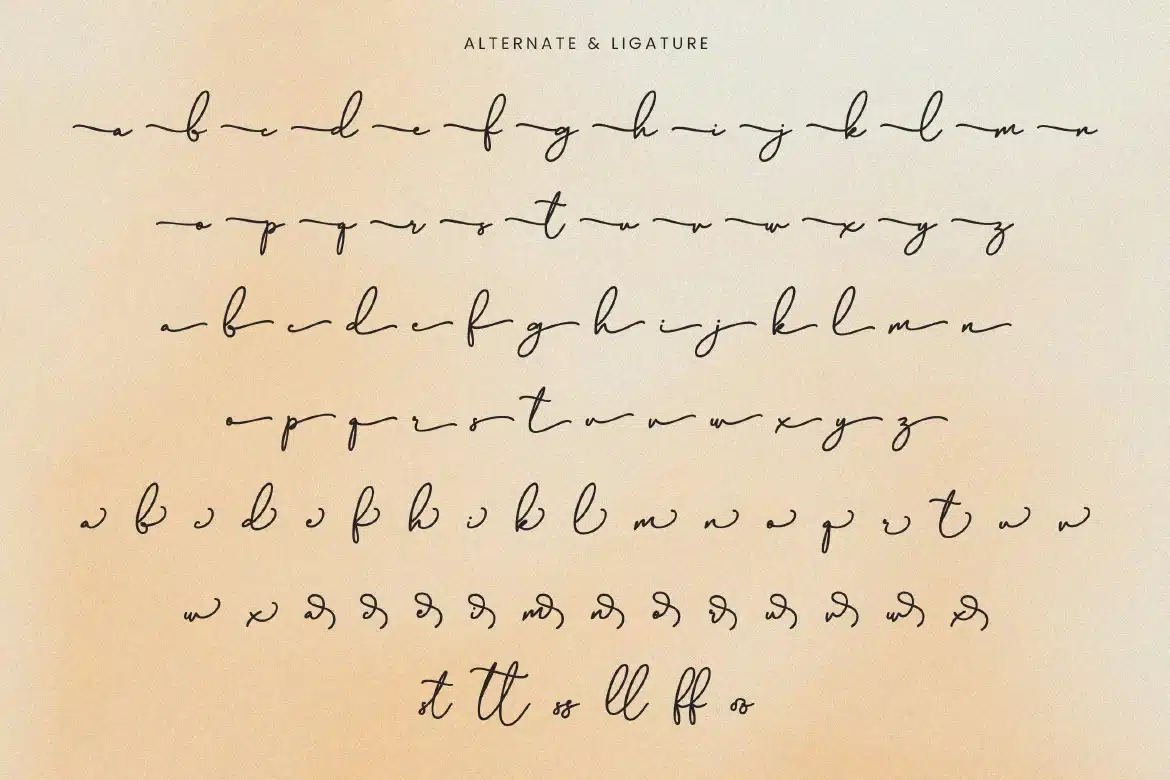 ALTERNATE & LIGATURE
a b c d e f g h i j k l m n
o p q r s t u v w x y z
a b c d e f g h i j k l m n
o p q r s t u v w x y z
a b c d e f h i k l m n o q r t u v
w x a c e i m n o r u v w x
st tt ss ll ff os